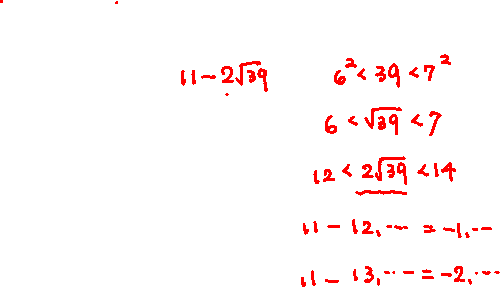 11 - 2√39
6² < 39 < 7²
6 < √39 < 7
12 < 2√39 < 14
11 - 12.… = -1.…
11 - 13.… = -2.…